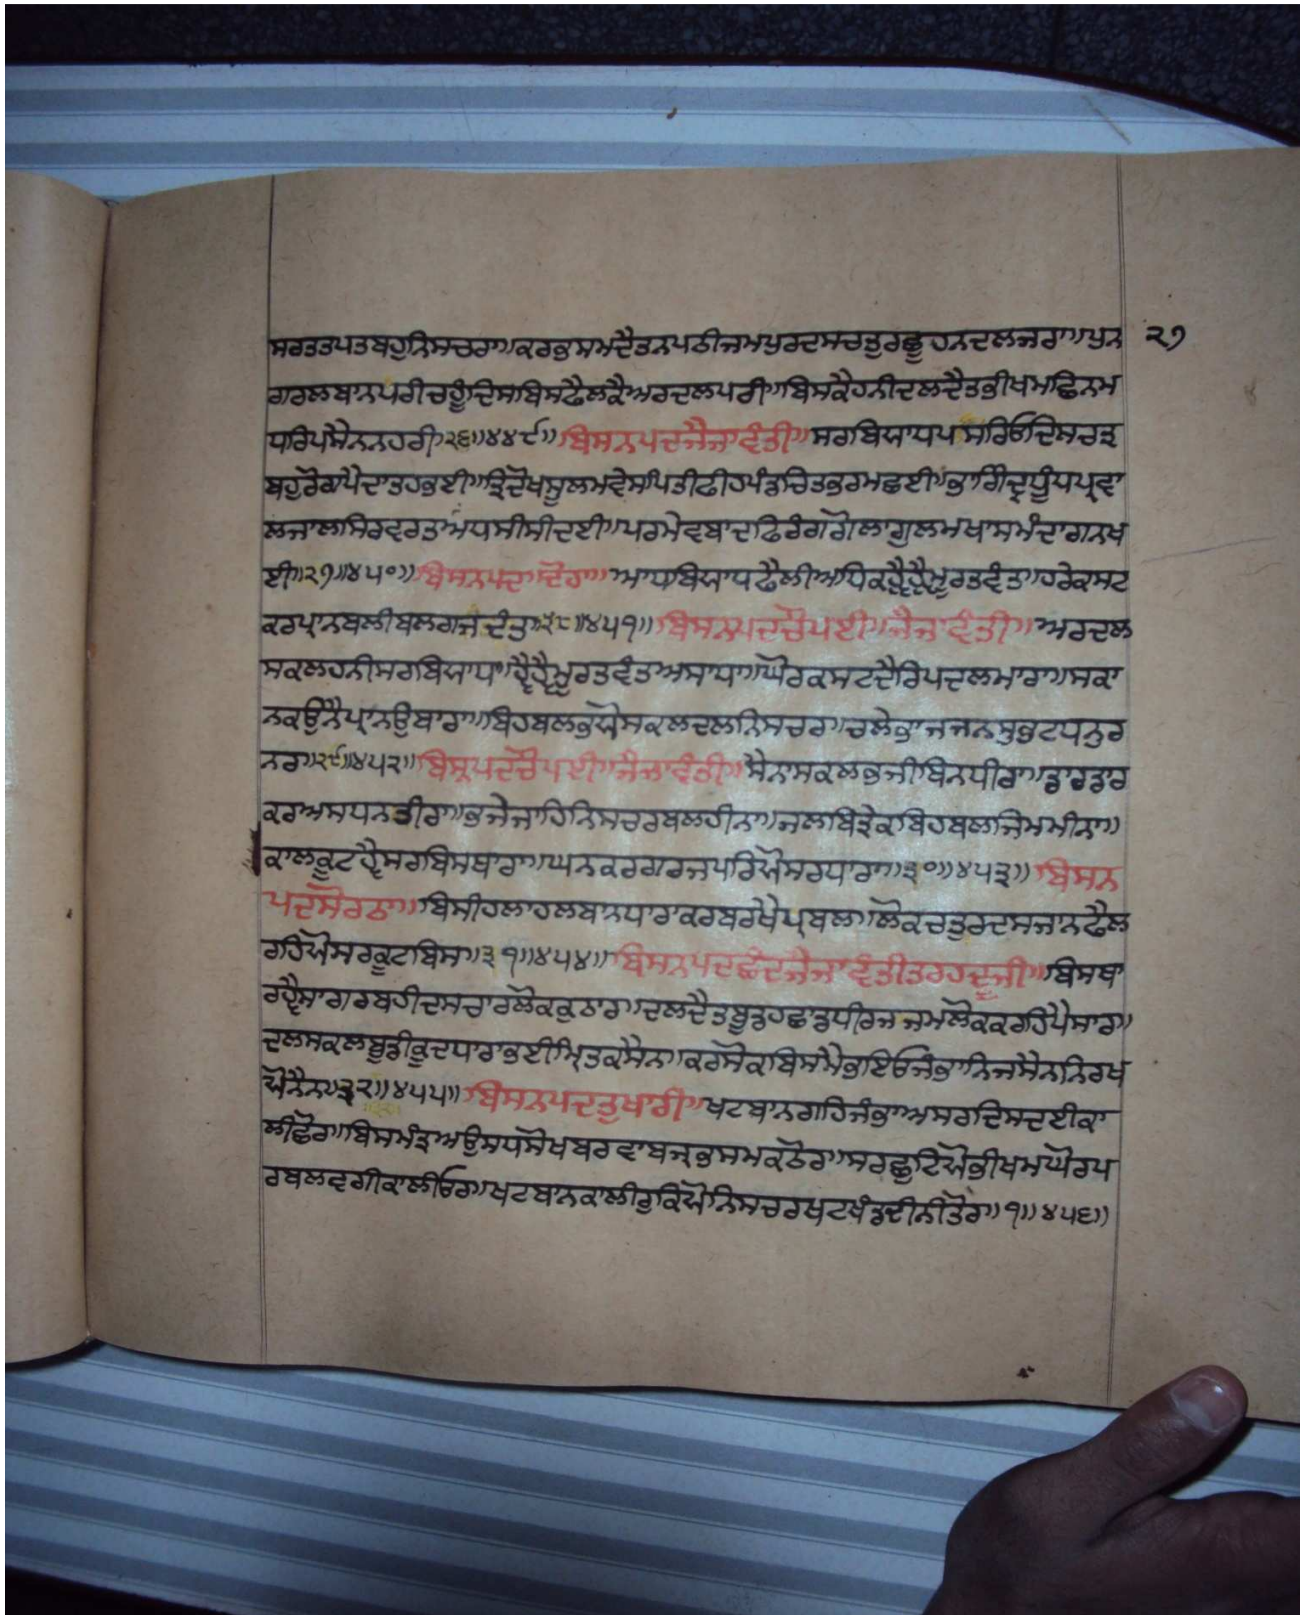 ਸਰਤਤਪਤਬਹੁਨਿਸਚਰਾ॥ਕਰਭੁਸਮਦੈਤਨਪਠੀਜਮਪੁਰਦਸਚਤੁਰਛੂਹਨਦਲਜਰਾ॥ਪੁਨ ੨੭
ਗਰਲਬਾਨਪਰੀਚਹੂੰਦਿਸਬਿਸਫੈਲਕੈਅਰਦਲਪਰੀ॥ਬਿਸਕੈਹਨੀਦਲਦੈਤਭੀਖਮਛਿਨਮ
ਧਰਿਪਸੈਨਨਹਰੀ੨੬॥੪੪੯॥ਬਿਸਨਪਦਜੈਜਾਵੰਤੀ॥ਸਰਬਿਯਾਧਪਸਰਿਓਦਿਸਚੜ
ਬਹੁਰੋਕਾਪੈਦਾਤਹਭਈ॥ਤ੍ਰਿਦੋਖਸੂਲਮਵੇਸਪਿਤੀਫੀਹਪੰਡਚਿਤਭਰਮਛਈ॥
ਲਜਾਲਸਿਰਵਰਤਅਧਸੀਸੀਦਈ॥ਪਰਮੇਵਬਾਦਫਿਰੰਗਗੋਲਾਗੁਲਮਖਾਸਮੰਦਾਗਨਖ
ਈ॥੨੭॥੪੫੦॥ਬਿਸਨਪਦਾਦੋਹਾ॥ਆਧਬਿਯਾਧਫੈਲੀਅਧਿਕਹ੍ਵੈਹ੍ਵੈਮੂਰਤਵੰਤ॥ਹਰੇਕਸਟ
ਕਰਪ੍ਰਾਨਬਲੀਬਲਗਜਦੰਤ॥੨੮॥੪੫੧॥ਬਿਸਨਪਦਚੌਪਈ॥ਜੈਜਾਵੰਤੀ॥ਅਰਦਲ
ਸਕਲਹਨੀਸਰਬਿਯਾਧਾ॥ਹ੍ਵੈਹ੍ਵੈਮੂਰਤਵੰਤਅਸਾਧਾ॥ਘੋਰਕਸਟਦੈਰਿਪਦਲਮਾਰਾ॥ਸਕਾ
ਨਕਉਨੈਪ੍ਰਾਨਉਬਾਰਾ॥ਬਿਹਬਲਭਯੋਸਕਲਦਲਨਿਸਚਰ॥ਚਲੇਭਾਜਜਨਸੁਭਟਧਨੁਰ
ਨਰ॥੨੯॥੪੫੨॥ਬਿਸ੍ਨਪਦਚੌਪਈ॥ਜੈਜਾਵੰਤੀ॥ਸੈਨਾਸਕਲਭਜੀਬਿਨਧੀਰਾ॥ਡਾਰਡਾਰ
ਕਰਅਸਧਨਤੀਰਾ॥ਭਜੇਜਾਹਿਨਿਸਚਰਬਲਹੀਨਾ॥ਜਲਬਿਛੋਕਬਿਹਬਲਜਿਮਮੀਨਾ॥
ਕਾਲਕੂਟਹ੍ਵੈਸਰਬਿਸਥਾਰਾ॥ਘਨਕਰਗਰਜਪਰਿਯੋਸਰਧਾਰਾ॥੩੦॥੪੫੩॥ਬਿਸਨ
ਪਦਸੋਰਠਾ॥ਬਿਸੀਹਲਾਹਲਬਾਨਧਾਰਾਕਰਬਰਖੇਪ੍ਰਬਲ॥ਲੋਕਚਤੁਰਦਸਜਾਨਫੈਲ
ਰਹਿਯੋਸਰਕੂਟਬਿਸ॥੩੧॥੪੫੪॥ਬਿਸਨਪਦਛੰਦਜੈਜਾਵੰਤੀਤਰਹਦੂਜੀ॥ਬਿਸਥਾ
ਰਹ੍ਵੈਸਾਗਰਬਹੀਦਸਚਾਰਲੋਕਕੁਠਾਰ॥ਦਲਦੈਤਬੂਡਹਛਾਡਧੀਰਜਜਮਲੋਕਕਰਹਿਪੈਸਾਰ॥
ਦਲਸਕਲਬੂਡੀਕੂਦਧਾਰਾਭਈਮ੍ਰਿਤਕਸੈਨ॥ਕਰਸੋਕਬਿਸਮੈਭਇਓਜੰਭਾਨਿਜਸੈਨਨਿਰਖ
ਯੋਨੈਨ॥੩੨॥੪੫੫॥ਬਿਸਨਪਦਤੁਖਾਰੀ॥ਖਟਬਾਨਗਹਿਜੰਭਾਅਸਰਦਿਸਦਈਕਾ
ਲੀਛੋਰ॥ਬਿਸਮੰਤ੍ਰਅਉਸਧਸੋਖਬਰਵਾਬਜ੍ਰਭੁਸਮਕਠੋਰ॥ਸਰਛੂਟਿਯੋਭੀਖਮਘੋਰਪ
ਰਬਲਵਗੀਕਾਲੀਓਰ॥ਖਟਬਾਨਕਾਲੀਰੁਕਿਯੋਨਿਸਚਰਖਟਖੰਡਦੀਨੀਤੋਰ॥੧॥੪੫੬॥